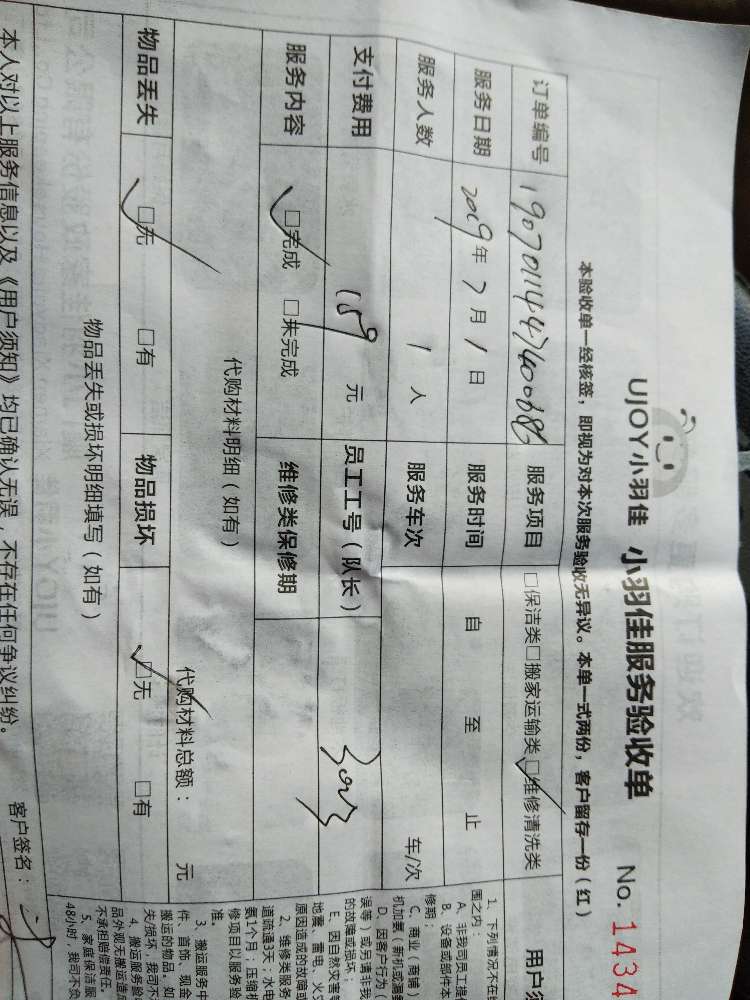 UJOY小羽佳 小羽佳服务验收单 No. 1434
本验收单一经核签，即视为对本次服务验收无异议。本单一式两份，客户留存一份（红）
订单编号 服务项目 □保洁类□搬家运输类□维修清洗类
服务日期 2019年7月1日 服务时间 自 至 止
服务人数 1人 服务车次 车/次
支付费用 159元 员工工号（队长）
服务内容 □完成 □未完成 维修类保修期
代购材料明细（如有） 代购材料总额： 元
物品丢失 □无 □有 物品损坏 □无 □有
物品丢失或损坏明细填写（如有）
本人对以上服务信息以及《用户须知》均已确认无误，不存在任何争议纠纷。
客户签名：
用户须
1、下列情况不在
围之内：
A、非我司员工提
B、设备或部件本
修期；
C、商业（商铺）
机加氨（新机或漏
D、因客户行为（
误等）或另请非我
的故障或损坏。
E、因自然灾害等
地震、雷电、火灾
原因造成的故障或
2、维修类服务
道疏通3天；水电
氨1个月；压缩机
修项目以服务验
准。
3、搬运服务中
件、首饰、现金
搬运的物品。如
失/损坏，我司不
4、搬运服务验
品外观无搬运造成
不承担赔偿责任。
5、家庭保洁服
48小时，我司不负